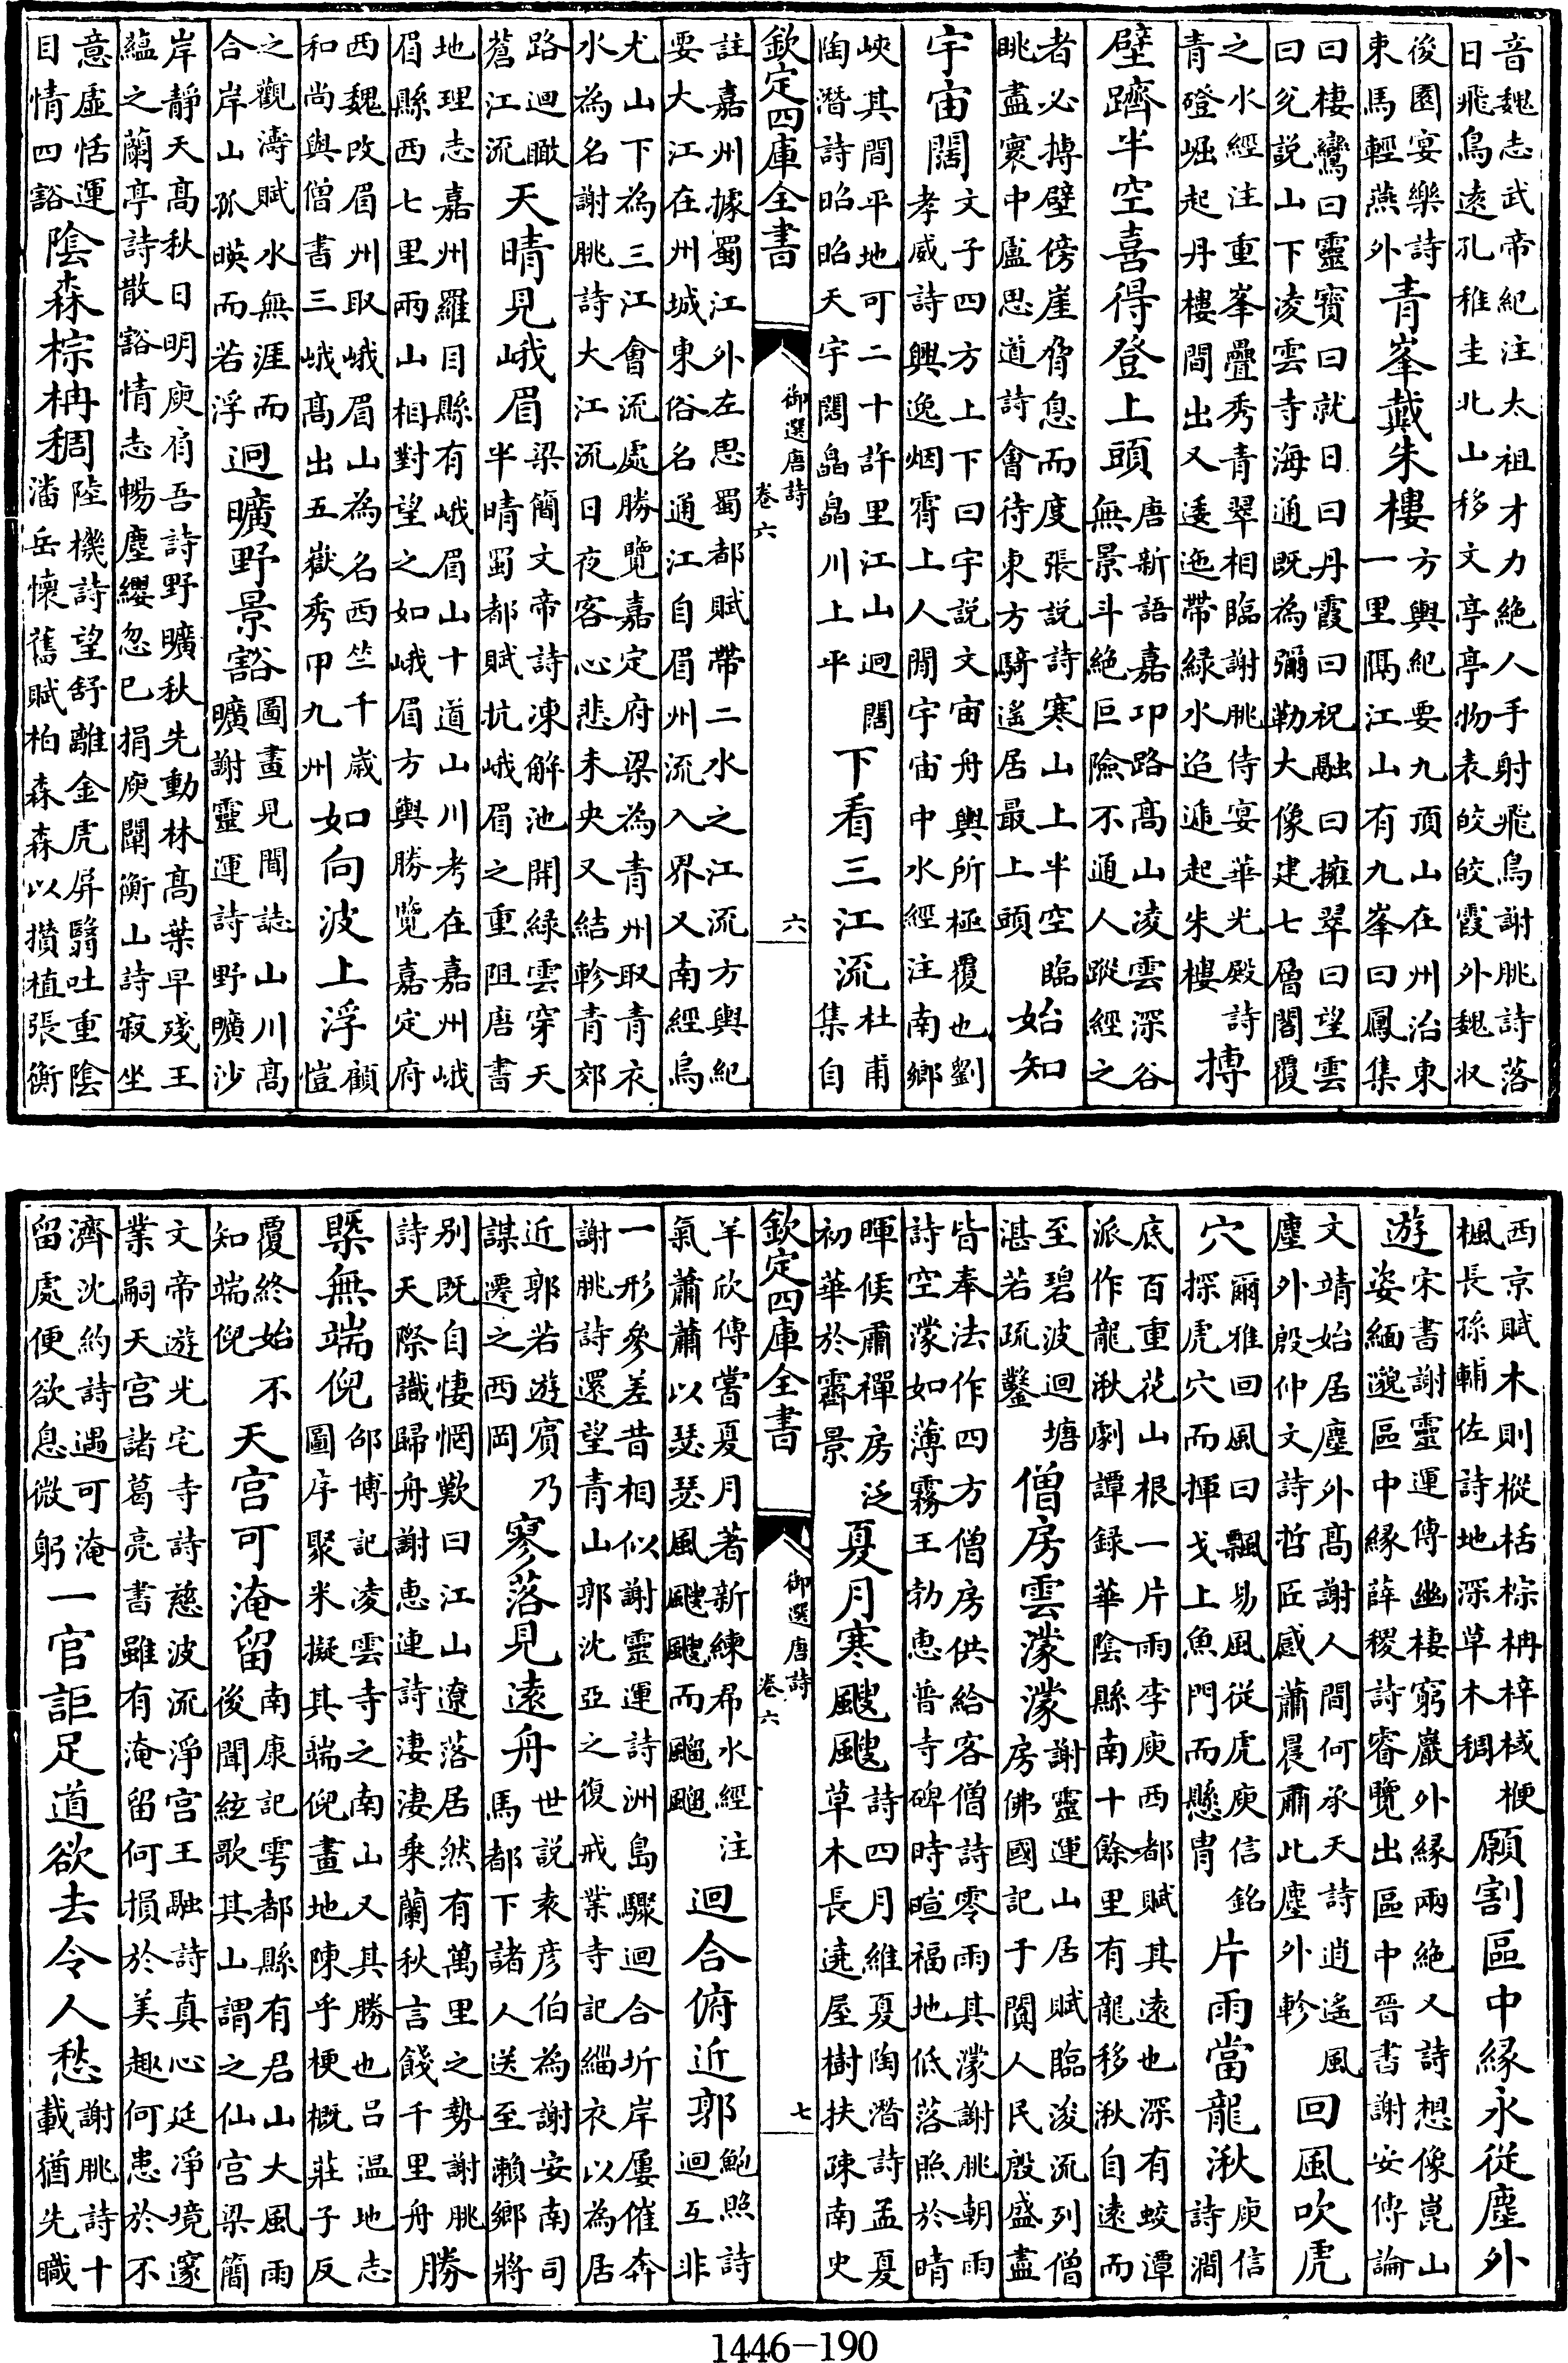 音魏志武帝紀注太祖才力絶人手射飛鳥謝朓詩落
日飛鳥遠孔稚圭北山移文亭亭物表皎皎霞外魏收
後園宴樂詩
東馬輕燕外
青峯戴朱樓
方輿紀要九頂山在州治東
一里隅江山有九峯曰鳳集
曰棲鸞曰靈寶曰就日曰丹霞曰祝融曰擁翠曰望雲
曰兊說山下凌雲寺海通既為彌勒大像建七層閣覆
之水經注重峯疊秀青翠相臨謝朓侍宴華光殿詩
青磴崛起丹樓間出又逶迤帶緑水迢遞起朱樓
搏
壁躋半空喜得登上頭
唐新語嘉卭路髙山凌雲深谷
無景斗絶巨險不通人蹤經之
者必搏壁傍崖脅息而度張說詩寒山上半空臨
眺盡寰中盧思道詩會待東方騎遙居最上頭
始知
宇宙闊
文子四方上下曰宇說文宙舟輿所極覆也劉
孝威詩興逸烟霄上人閒宇宙中水經注南鄉
峽其間平地可二十許里江山迥闊
陶潛詩昭昭天宇闊皛皛川上平
下看三江流
杜甫
集自
欽定四庫全書
御選唐詩
卷六
六
註嘉州據蜀江外左思蜀都賦帶二水之江流方輿紀
要大江在州城東俗名通江自眉州流入界又南經烏
尤山下為三江會流處勝覽嘉定府梁為青州取青衣
水為名謝朓詩大江流日夜客心悲未央又結軫青郊
路迥瞰
蒼江流
天晴見峨眉
梁簡文帝詩凍解池開緑雲穿天
半晴蜀都賦抗峨眉之重阻唐書
地理志嘉州羅目縣有峨眉山十道山川考在嘉州峨
眉縣西七里兩山相對望之如峨眉方輿勝覽嘉定府
西魏改眉州取峨眉山為名西竺千歳
和尚與僧書三峨髙出五嶽秀甲九州
如向波上浮
顧
愷
之觀濤賦水無涯而
合岸山孤暎而若浮
迥曠野景豁
圖畫見聞誌山川髙
曠謝靈運詩野曠沙
岸靜天髙秋日明庾肩吾詩野曠秋先動林髙葉早殘王
藴之蘭亭詩散豁情志暢塵纓忽已捐庾闡衡山詩寂坐
意虚恬運
目情四豁
陰森棕柟稠
陸機詩望舒離金虎屏翳吐重陰
潘岳懷舊賦柏森森以攅植張衡
西京賦木則樅栝棕柟梓棫楩
楓長孫輔佐詩地深草木稠
願割區中縁永從塵外
遊
宋書謝靈運傳幽棲窮巖外縁兩絶又詩想像崑山
姿緬邈區中縁薛稷詩睿覽出區中晉書謝安傳論
文靖始居塵外髙謝人間何承天詩逍遙風
塵外殷仲文詩哲匠感蕭晨肅此塵外軫
回風吹虎
穴
爾雅回風曰飄易風從虎庾信銘
探虎穴而揮戈上魚門而懸胄
片雨當龍湫
庾信
詩澗
底百重花山根一片雨李庾西都賦其遠也深有蛟潭
派作龍湫劇譚録華陰縣南十餘里有龍移湫自遠而
至碧波迴塘
湛若疏鑿
僧房雲濛濛
謝靈運山居賦臨浚流列僧
房佛國記于闐人民殷盛盡
皆奉法作四方僧房供給客僧詩零雨其濛謝朓朝雨
詩空濛如薄霧王勃恵普寺碑時暄福地低落照於晴
暉候肅禪房泛
初華於霽景
夏月寒颼颼
詩四月維夏陶潛詩孟夏
草木長遶屋樹扶疎南史
欽定四庫全書
御選唐詩
卷六
七
羊欣傳嘗夏月著新練帬水經注
氣蕭蕭以瑟瑟風颼颼而飀飀
迴合俯近郭
鮑照詩
迴互非
一形參差昔相似謝靈運詩洲島驟迴合圻岸屢催奔
謝朓詩還望青山郭沈亞之復戒業寺記緇衣以為居
近郭若遊賔乃
謀遷之西岡
寥落見遠舟
世說袁彥伯為謝安南司
馬都下諸人送至瀨鄉將
别既自悽惘歎曰江山遼落居然有萬里之勢謝朓
詩天際識歸舟謝恵連詩淒淒乗蘭秋言餞千里舟
勝
槩無端倪
邵博記凌雲寺之南山又其勝也吕温地志
圖序聚米擬其端倪畫地陳乎梗概莊子反
覆終始不
知端倪
天宫可淹留
南康記雩都縣有君山大風雨
後聞絃歌其山謂之仙宫梁簡
文帝遊光宅寺詩慈波流淨宫王融詩真心延淨境邃
業嗣天宫諸葛亮書雖有淹留何損於美趣何患於不
濟沈約詩遇可淹
留處便欲息微躬
一官詎足道欲去令人愁
謝朓詩十
載猶先職
1446-190